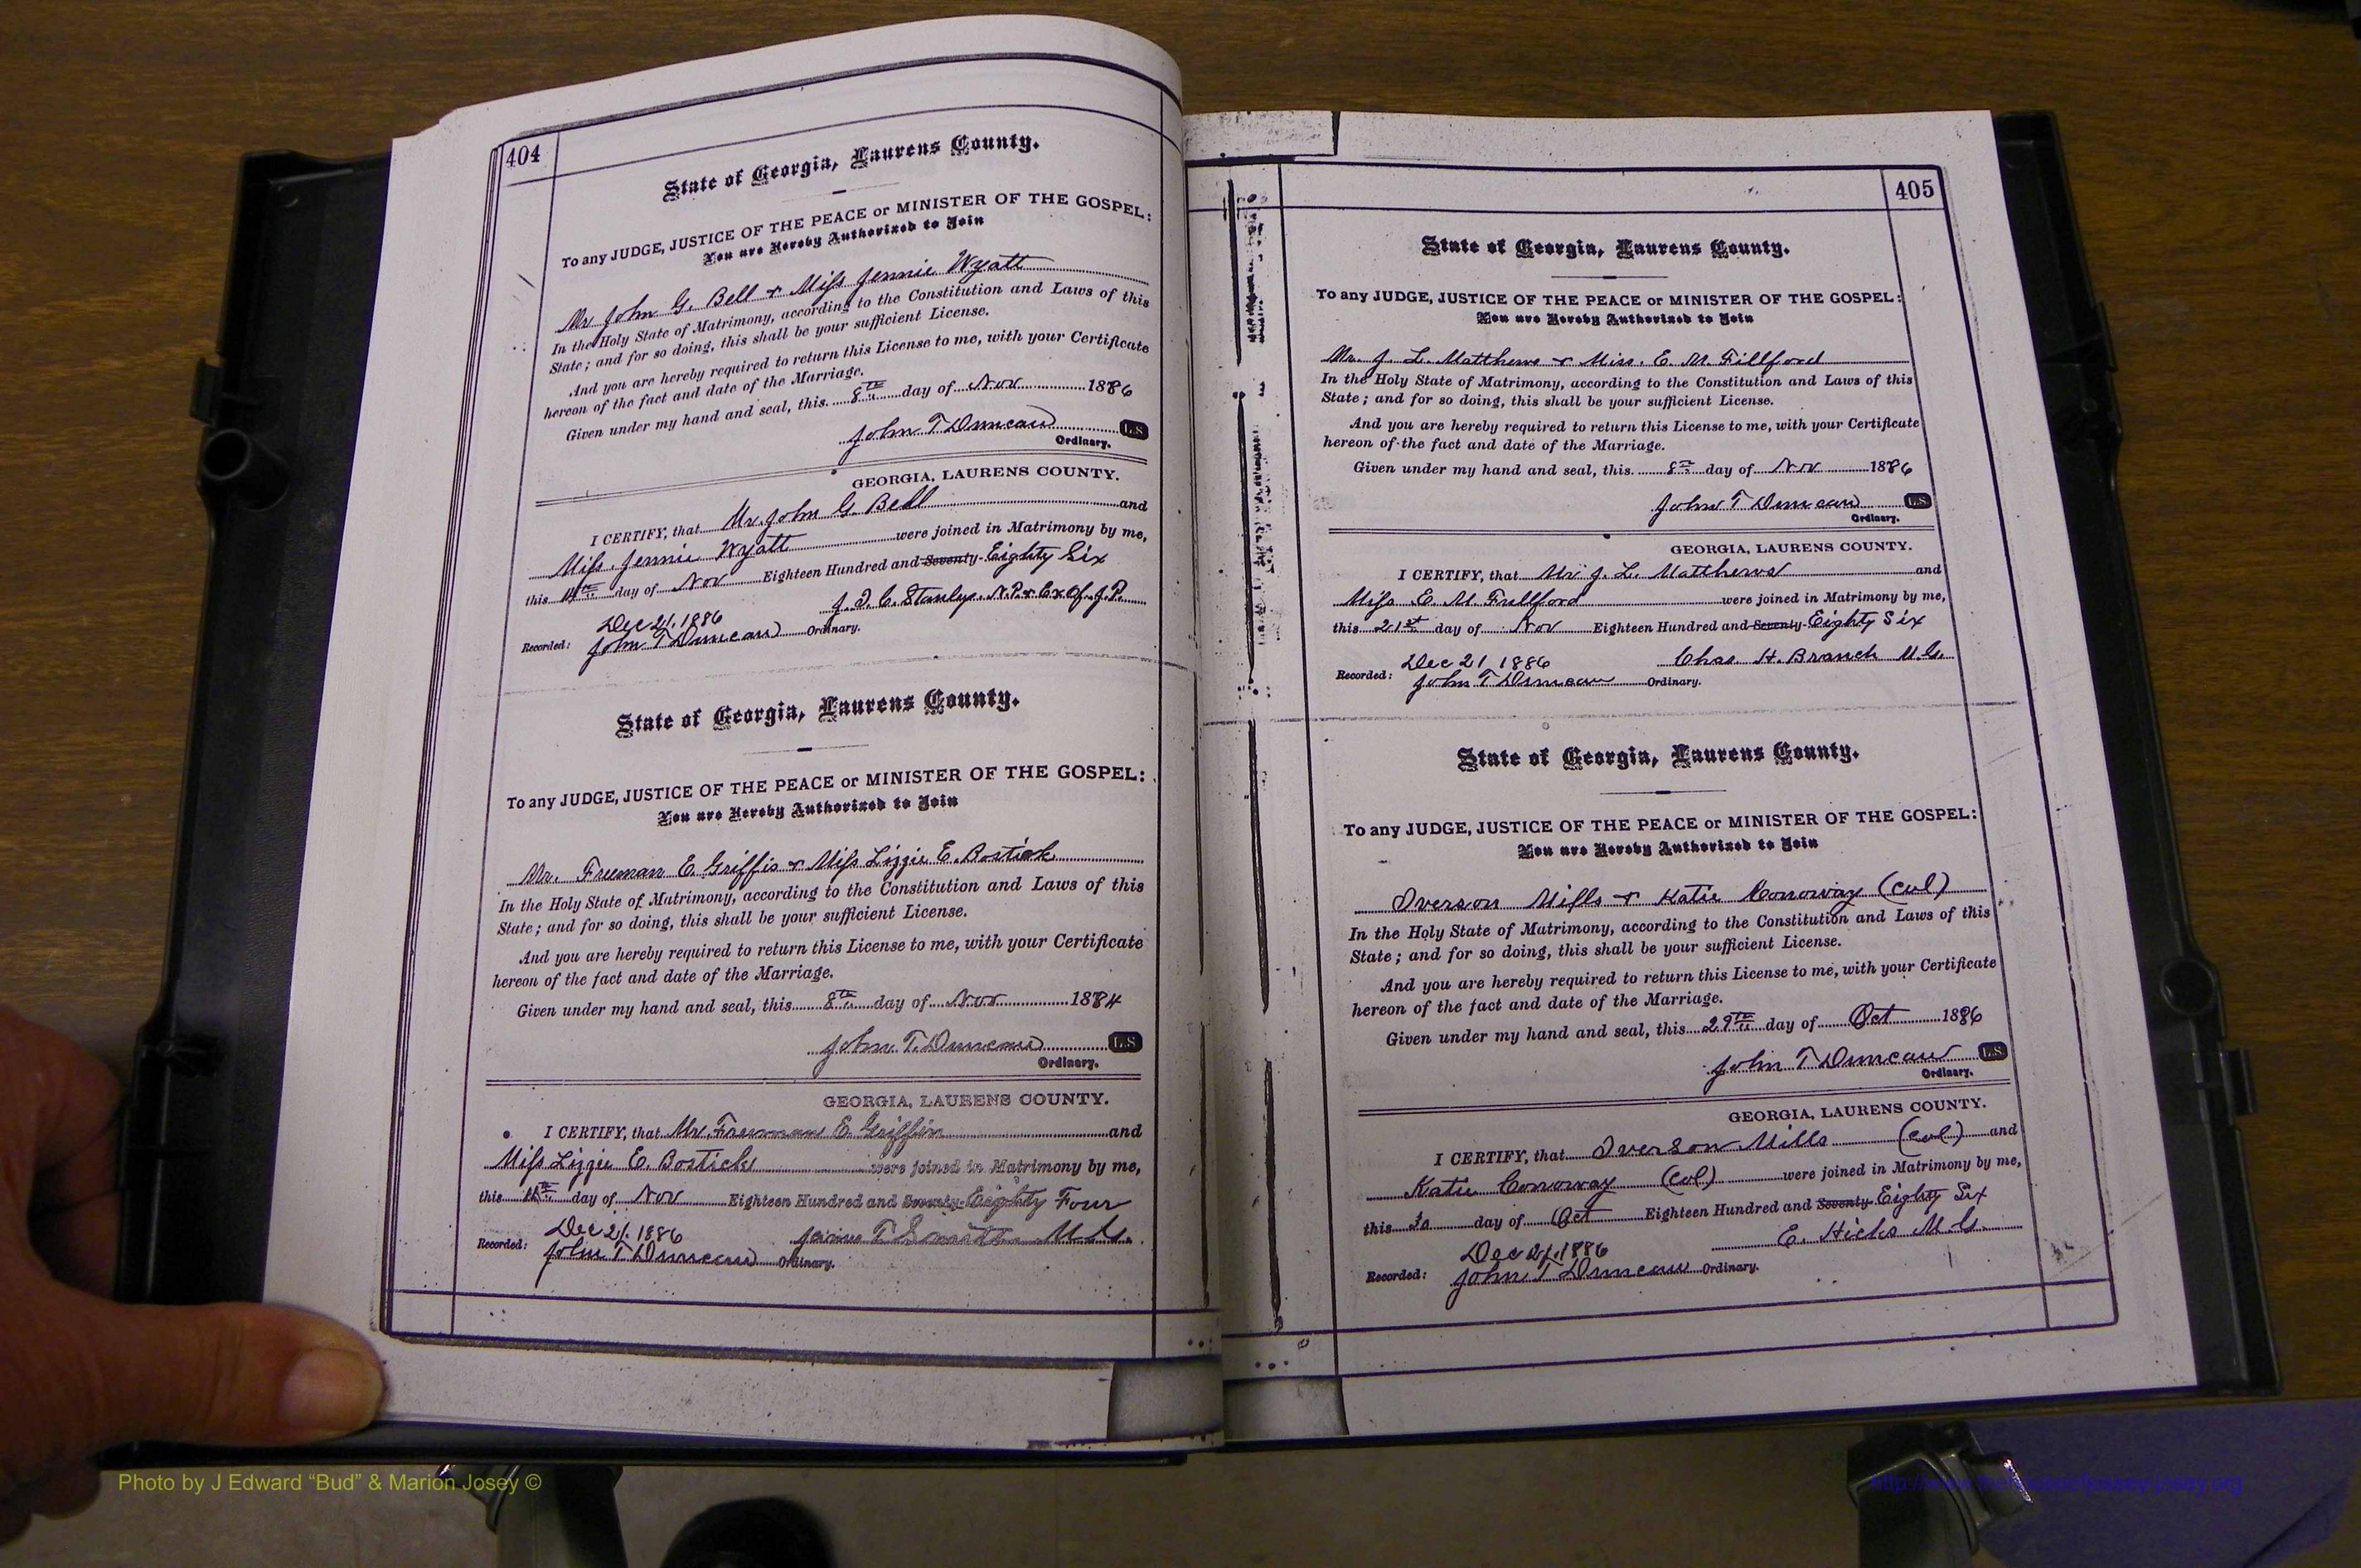 404
State of Georgia, Laurens County.
To any JUDGE, JUSTICE OF THE PEACE or MINISTER OF THE GOSPEL:
You are Hereby Authorized to Join
Mr John G. Bell & Miss Jennie Wyatt
In the Holy State of Matrimony, according to the Constitution and Laws of this
State; and for so doing, this shall be your sufficient License.
And you are hereby required to return this License to me, with your Certificate
hereon of the fact and date of the Marriage.
Given under my hand and seal, this 8th day of Nov 1886
John T Duncan L.S.
Ordinary.
GEORGIA, LAURENS COUNTY.
I CERTIFY, that Mr. John G. Bell and
Miss. Jennie Wyatt were joined in Matrimony by me,
this 11th day of Nov Eighteen Hundred and Seventy- Eighty Six
J. D. C. Stanley. N.P. & Ex Of. J.P.
Dec 21, 1886
Recorded: John T Duncan Ordinary.
State of Georgia, Laurens County.
To any JUDGE, JUSTICE OF THE PEACE or MINISTER OF THE GOSPEL:
You are Hereby Authorized to Join
Mr. Freeman E Griffis & Miss Lizzie E. Bostick
In the Holy State of Matrimony, according to the Constitution and Laws of this
State; and for so doing, this shall be your sufficient License.
And you are hereby required to return this License to me, with your Certificate
hereon of the fact and date of the Marriage.
Given under my hand and seal, this 8th day of Nov 1884
John. T. Duncan L.S.
Ordinary.
GEORGIA, LAURENS COUNTY.
I CERTIFY, that Mr. Freeman E. Griffin and
Miss Lizzie E. Bostick were joined in Matrimony by me,
this 11th day of Nov Eighteen Hundred and Seventy- Eighty Four
T Smith M.G.
Dec 21. 1886
Recorded: John T Duncan Ordinary.
405
State of Georgia, Laurens County.
To any JUDGE, JUSTICE OF THE PEACE or MINISTER OF THE GOSPEL:
You are Hereby Authorized to Join
Mr. J. L. Matthews & Miss. E. M. Fillford
In the Holy State of Matrimony, according to the Constitution and Laws of this
State; and for so doing, this shall be your sufficient License.
And you are hereby required to return this License to me, with your Certificate
hereon of the fact and date of the Marriage.
Given under my hand and seal, this 8th day of Nov 1886
John T Duncan L.S.
Ordinary.
GEORGIA, LAURENS COUNTY.
I CERTIFY, that Mr J. L. Matthews and
Miss E. M. Fullford were joined in Matrimony by me,
this 21st day of Nov Eighteen Hundred and Seventy- Eighty Six
Chas. H. Branch M.G.
Dec 21, 1886
Recorded: John T Duncan Ordinary.
State of Georgia, Laurens County.
To any JUDGE, JUSTICE OF THE PEACE or MINISTER OF THE GOSPEL:
You are Hereby Authorized to Join
Iverson Mills & Katie Conoway (col)
In the Holy State of Matrimony, according to the Constitution and Laws of this
State; and for so doing, this shall be your sufficient License.
And you are hereby required to return this License to me, with your Certificate
hereon of the fact and date of the Marriage.
Given under my hand and seal, this 29th day of Oct 1886
John T Duncan L.S.
Ordinary.
GEORGIA, LAURENS COUNTY.
I CERTIFY, that Iverson Mills (col) and
Katie Conoway (col) were joined in Matrimony by me,
this 30 day of Oct Eighteen Hundred and Seventy Eighty Six
E. Hicks M.G.
Dec 21, 1886
Recorded: John T Duncan Ordinary.
Photo by J Edward “Bud” & Marion Josey ©
http://www.thehouseofjossey-josey.org